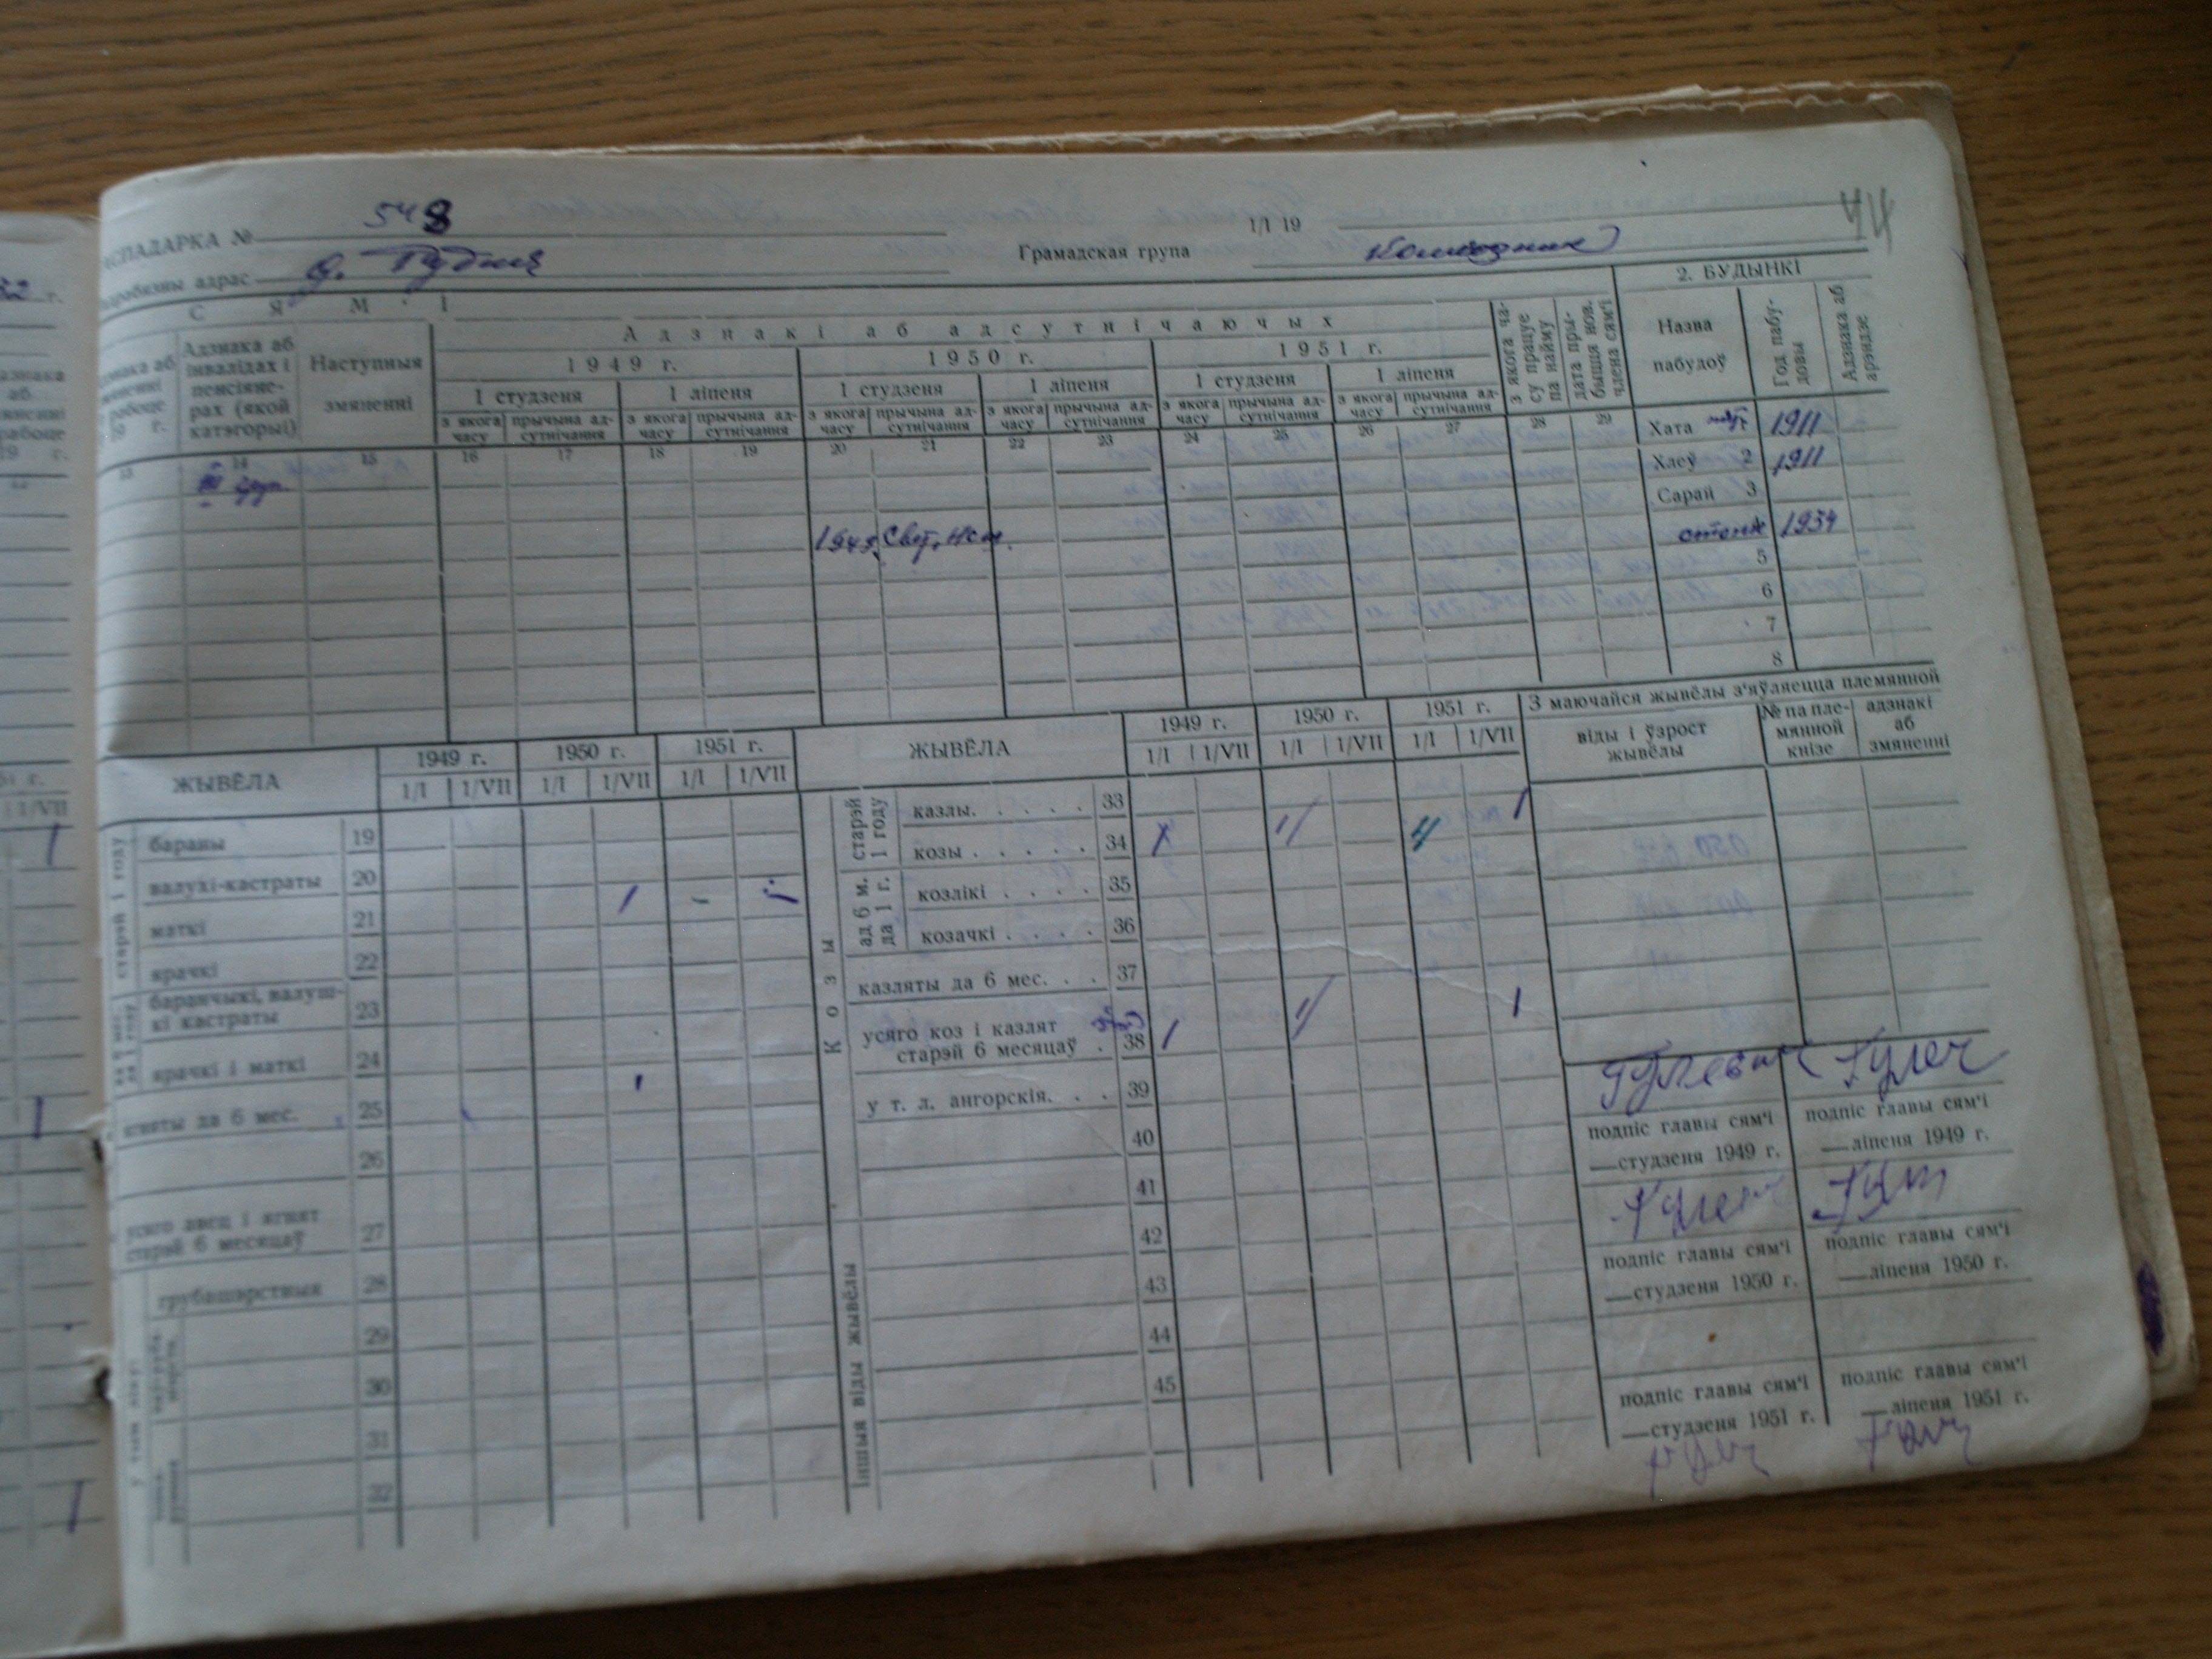 АСПАДАРКА № 548 1/I 19
44
адрас в. Грамадская група Колхозник
С Я М ' І
2. БУДЫНКІ
Адзнакі аб адсутнічаючых
1949 г. 1950 г. 1951 г.
1 студзеня 1 ліпеня 1 студзеня 1 ліпеня 1 студзеня 1 ліпеня
з якога часу прычына адсутнічання з якога часу прычына адсутнічання з якога часу прычына адсутнічання з якога часу прычына адсутнічання з якога часу прычына адсутнічання з якога часу прычына адсутнічання
Адзнака аб інвалідах і пенсіянерах (якой катэгорыі)
Наступныя змяненні
з якога часу працуе па найму
дата прыбыцця нов. члена сям'і
Назва пабудоў
Год пабудовы
Адзнака аб арэндзе
13 14 15 16 17 18 19 20 21 22 23 24 25 26 27 28 29
III груп.
1945
Хата 1911
Хлеў 2 1911
Сарай 3
1934
5
6
7
8
ЖЫВЁЛА 1949 г. 1950 г. 1951 г.
1/I 1/VII 1/I 1/VII 1/I 1/VII
старэй 1 году
бараны 19
валухі-кастраты 20
маткі 21 1 -
ярачкі 22
баранчыкі, валушкі кастраты 23
ярачкі і маткі 24
ягняты да 6 мес. 25 1
26
усяго авец і ягнят старэй 6 месяцаў 27
грубашэрстныя 28
29
30
31
32
ЖЫВЁЛА 1949 г. 1950 г. 1951 г.
1/I 1/VII 1/I 1/VII 1/I 1/VII
Козы
старэй 1 году
казлы 33 1
козы 34
ад 6 м. да 1 г.
козлікі 35
козачкі 36
казляты да 6 мес. 37
усяго коз і казлят старэй 6 месяцаў 38 1 1
у т. л. ангорскія 39
40
41
Іншыя віды жывёлы
42
43
44
45
З маючайся жывёлы з'яўляецца племянной
віды і ўзрост жывёлы
№ па племянной кнізе
адзнакі аб змяненні
Гулевич
подпіс главы сям'і
—студзеня 1949 г.
подпіс главы сям'і
—ліпеня 1949 г.
подпіс главы сям'і
—студзеня 1950 г.
подпіс главы сям'і
—ліпеня 1950 г.
подпіс главы сям'і
—студзеня 1951 г.
подпіс главы сям'і
—ліпеня 1951 г.